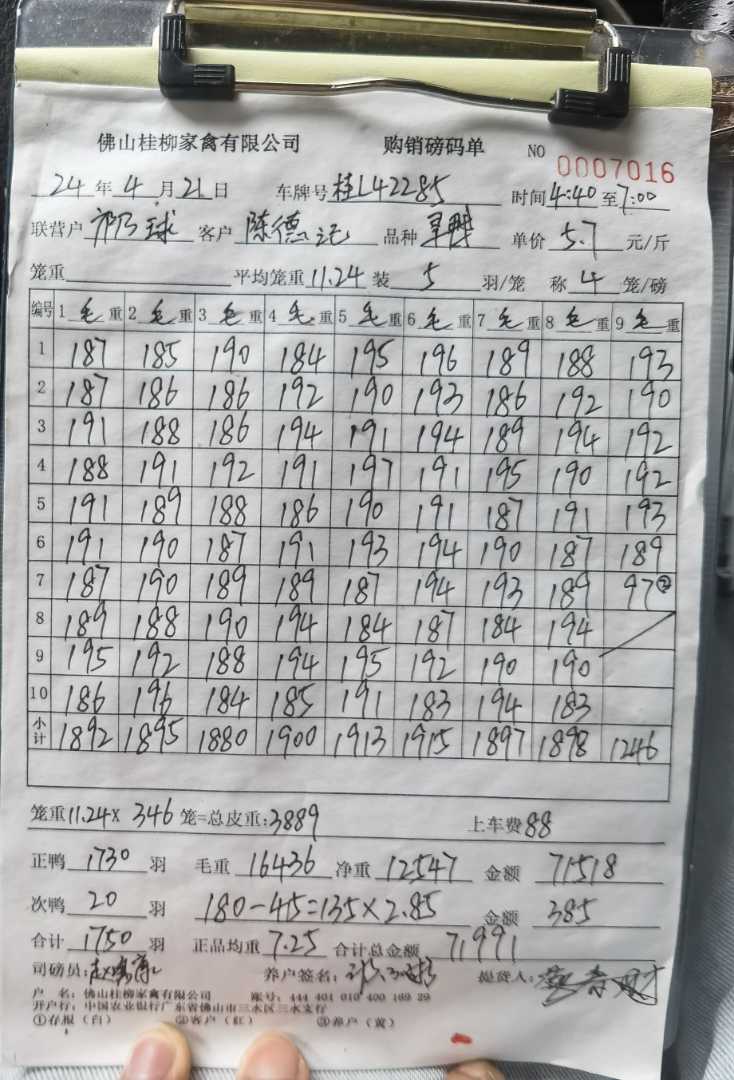 佛山桂柳家禽有限公司 购销磅码单 NO 0007016
24年4月21日 车牌号桂L42285 时间4:40至7:00
联营户 球 客户 陈德记 品种 单价 5.7 元/斤
笼重 平均笼重11.24 装 5 羽/笼 称 4 笼/磅
编号 1毛重 2毛重 3毛重 4毛重 5毛重 6毛重 7毛重 8毛重 9毛重
1 187 185 190 184 195 196 189 188 193
2 187 186 186 192 190 193 186 192 190
3 191 188 186 194 191 194 189 194 192
4 188 191 192 191 197 191 195 190 192
5 191 189 188 186 190 191 187 191 193
6 191 190 187 191 193 194 190 187 189
7 187 190 189 189 187 194 193 189 97②
8 189 188 190 194 184 187 184 194
9 195 192 188 194 195 192 190 190
10 186 196 184 185 191 183 194 183
小计 1892 1895 1880 1900 1913 1915 1897 1898 1246
笼重11.24× 346 笼=总皮重:3889 上车费88
正鸭 1730 羽 毛重 16436 净重 12547 金额 71518
次鸭 20 羽 180-45=135×2.85 金额 385
合计 1750 羽 正品均重 7.25 合计总金额 71991
司磅员: 养户签名: 提货人:
户 名: 佛山桂柳家禽有限公司 账号: 444 401 010 400 169 29
开户行: 中国农业银行广东省佛山市三水区三水支行
①存根（白） ②客户（红） ③养户（黄）